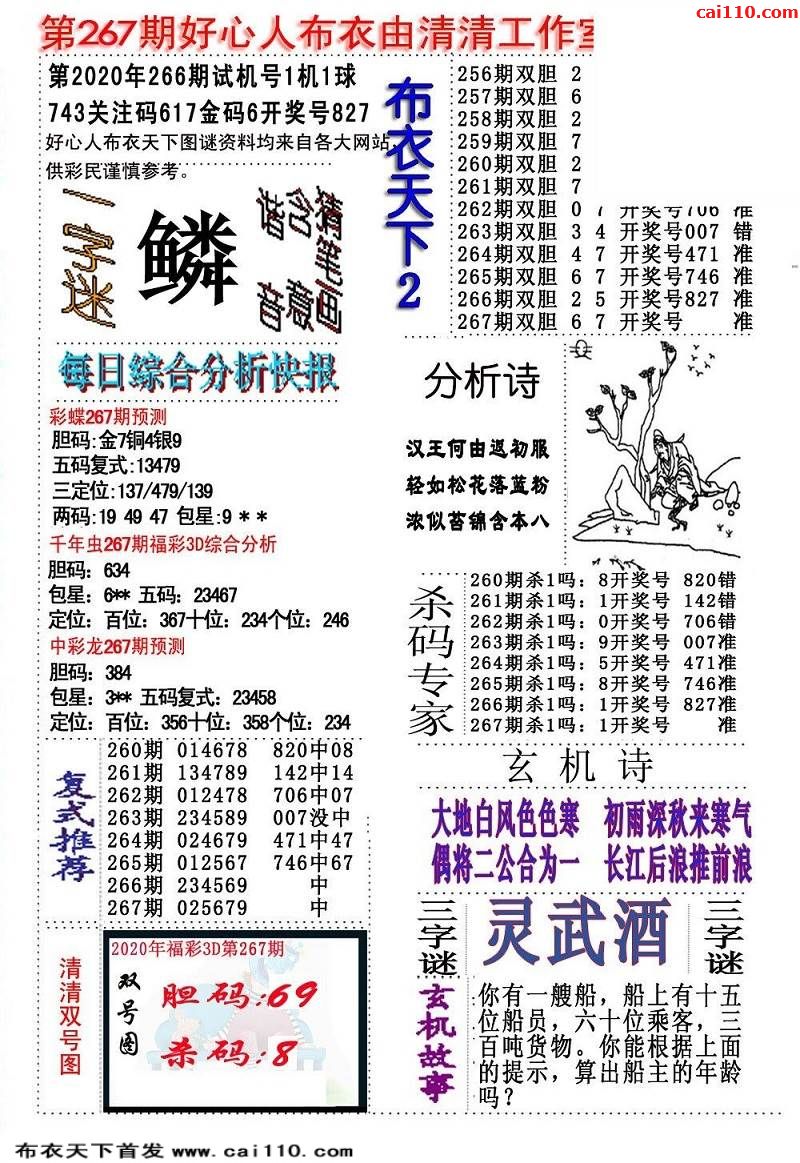 cai110.com
第267期好心人布衣由清清工作室
第2020年266期试机号1机1球
743关注码617金码6开奖号827
好心人布衣天下图谜资料均来自各大网站,
供彩民谨慎参考。
一字迷
鳞
谐音
含意
猜笔画
布衣天下2
256期双胆 2
257期双胆 6
258期双胆 2
259期双胆 7
260期双胆 2
261期双胆 7
262期双胆 0 7 开奖号706 准
263期双胆 3 4 开奖号007 错
264期双胆 4 7 开奖号471 准
265期双胆 6 7 开奖号746 准
266期双胆 2 5 开奖号827 准
267期双胆 6 7 开奖号 准
每日综合分析快报
彩蝶267期预测
胆码:金7铜4银9
五码复式:13479
三定位:137/479/139
两码:19 49 47 包星:9 * *
千年虫267期福彩3D综合分析
胆码: 634
包星: 6** 五码: 23467
定位: 百位: 367十位: 234个位: 246
中彩龙267期预测
胆码: 384
包星: 3** 五码复式: 23458
定位: 百位: 356十位: 358个位: 234
分析诗
汉王何由返初服
轻如松花落蓝粉
浓似苔锦含本八
杀码专家
260期杀1吗: 8开奖号 820错
261期杀1吗: 1开奖号 142错
262期杀1吗: 0开奖号 706错
263期杀1吗: 9开奖号 007准
264期杀1吗: 5开奖号 471准
265期杀1吗: 8开奖号 746准
266期杀1吗: 1开奖号 827准
267期杀1吗: 1开奖号 准
复式推荐
260期 014678 820中08
261期 134789 142中14
262期 012478 706中07
263期 234589 007没中
264期 024679 471中47
265期 012567 746中67
266期 234569 中
267期 025679 中
玄机诗
大地白风色色寒 初雨深秋来寒气
偶将二公合为一 长江后浪推前浪
三字谜
灵武酒
三字谜
清清双号图
2020年福彩3D第267期
双号图
胆码:69
杀码:8
玄机故事
你有一艘船，船上有十五
位船员，六十位乘客，三
百吨货物。你能根据上面
的提示，算出船主的年龄
吗？
布衣天下首发 www.cai110.com